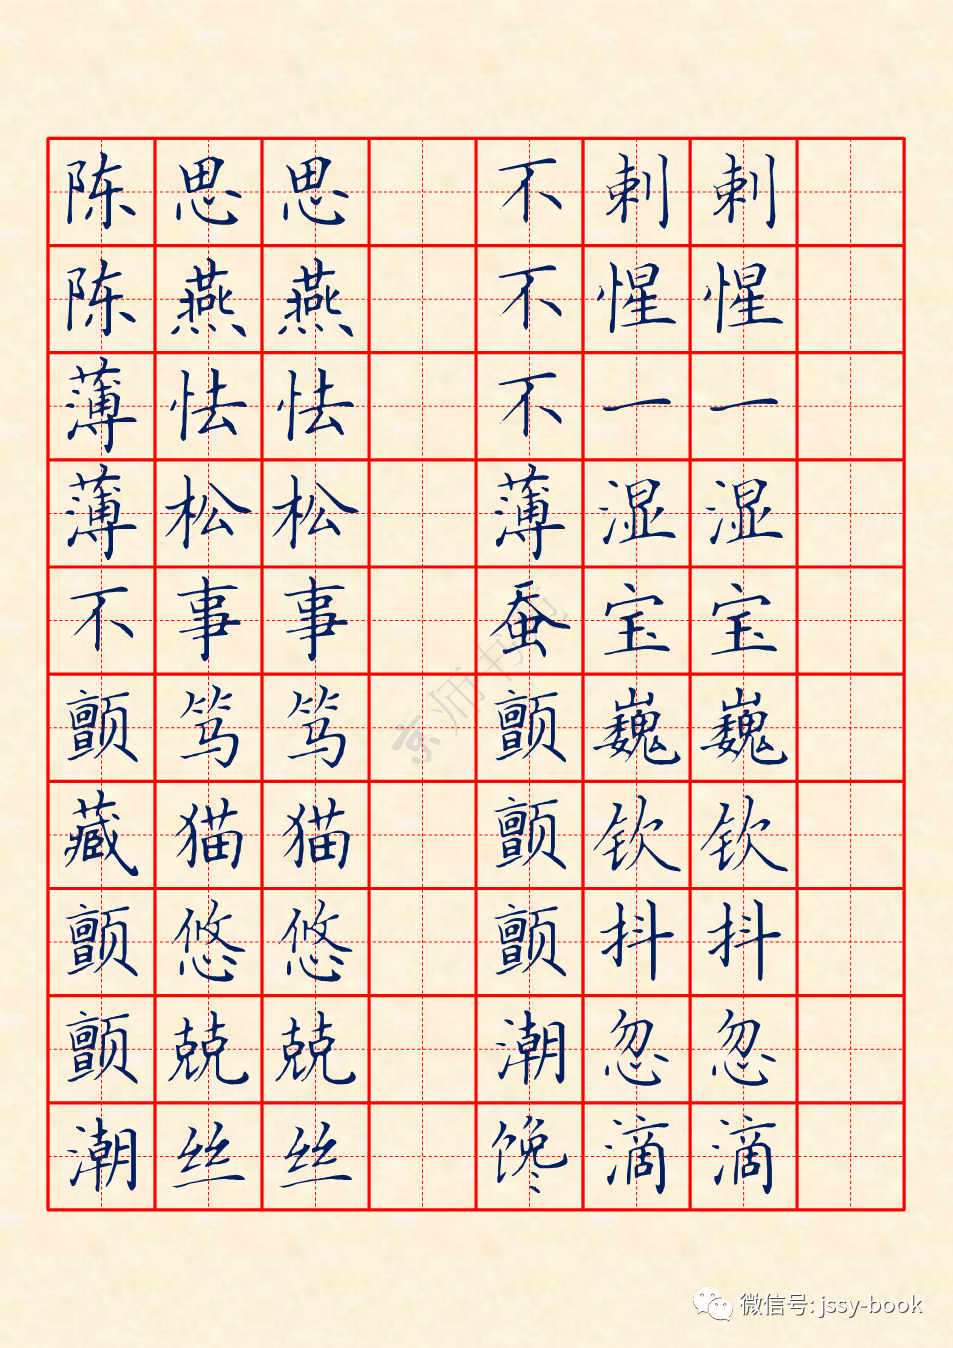 陈思思 不剌剌
陈燕燕 不惺惺
薄怯怯 不一一
薄松松 薄湿湿
不事事 蚕宝宝
颤笃笃 颤巍巍
藏猫猫 颤钦钦
颤悠悠 颤抖抖
颤兢兢 潮忽忽
潮丝丝 馋滴滴
京师书
微信号: jssy-book